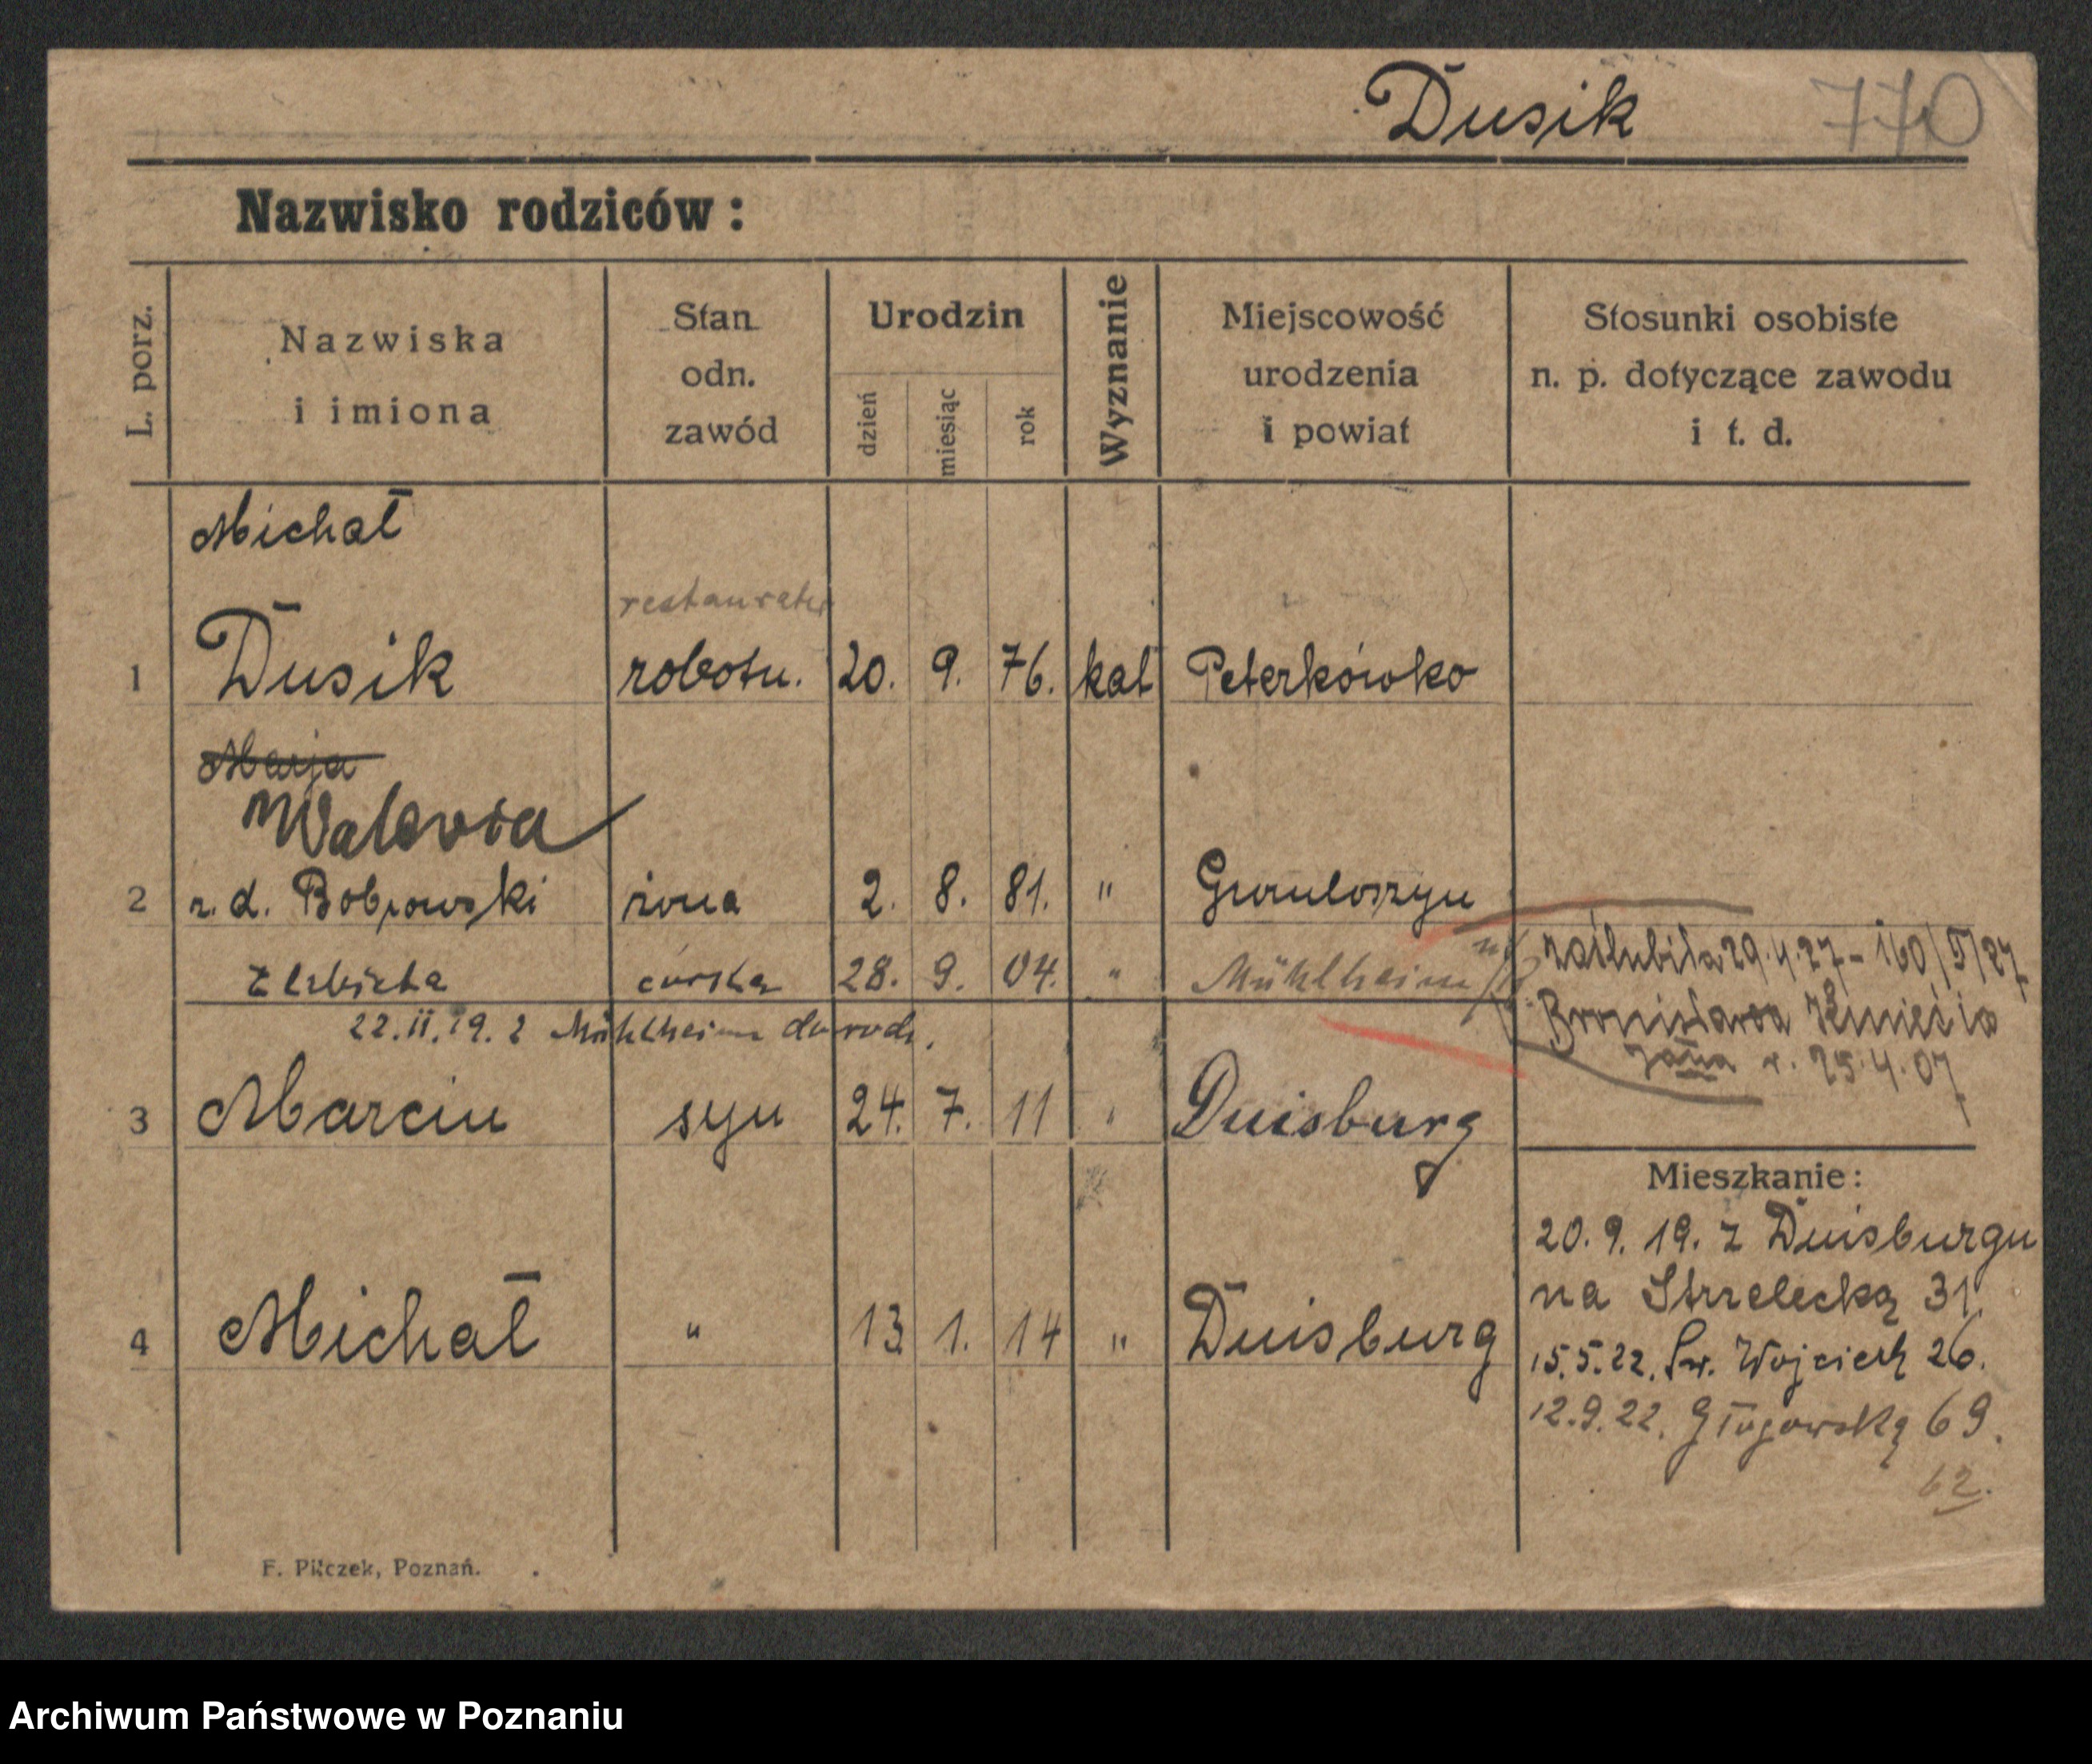 Dusik 770
Nazwisko rodziców:
L. porz.
Nazwiska
i imiona
Stan
odn.
zawód
Urodzin
dzień
miesiąc
rok
Wyznanie
Miejscowość
urodzenia
i powiat
Stosunki osobiste
n. p. dotyczące zawodu
i t. d.
Michał
restaurator
1 Dusik robotn. 20. 9. 76. kat Peterkówko
Marja
Waleria
2 z. d. Bobrowski żona 2. 8. 81. "
Elzbieta córka 28. 9. 04. " Mühlheim
zaślubiła 29.4.27 - 160/5/27
Bronisława Kmiecia
Jana r. 25.4.07
22.11.19. z Mühlheim do rodz.
3 Marcin syn 24. 7. 11 " Duisburg
4 Michał " 13 1. 14 " Duisburg
Mieszkanie:
20. 9. 19. z Duisburgu
na Strzelecką 31.
15.5.22. Św. Wojciech 26.
12.9.22. Głogowską 69.
62.
F. Pilczek, Poznań.
Archiwum Państwowe w Poznaniu